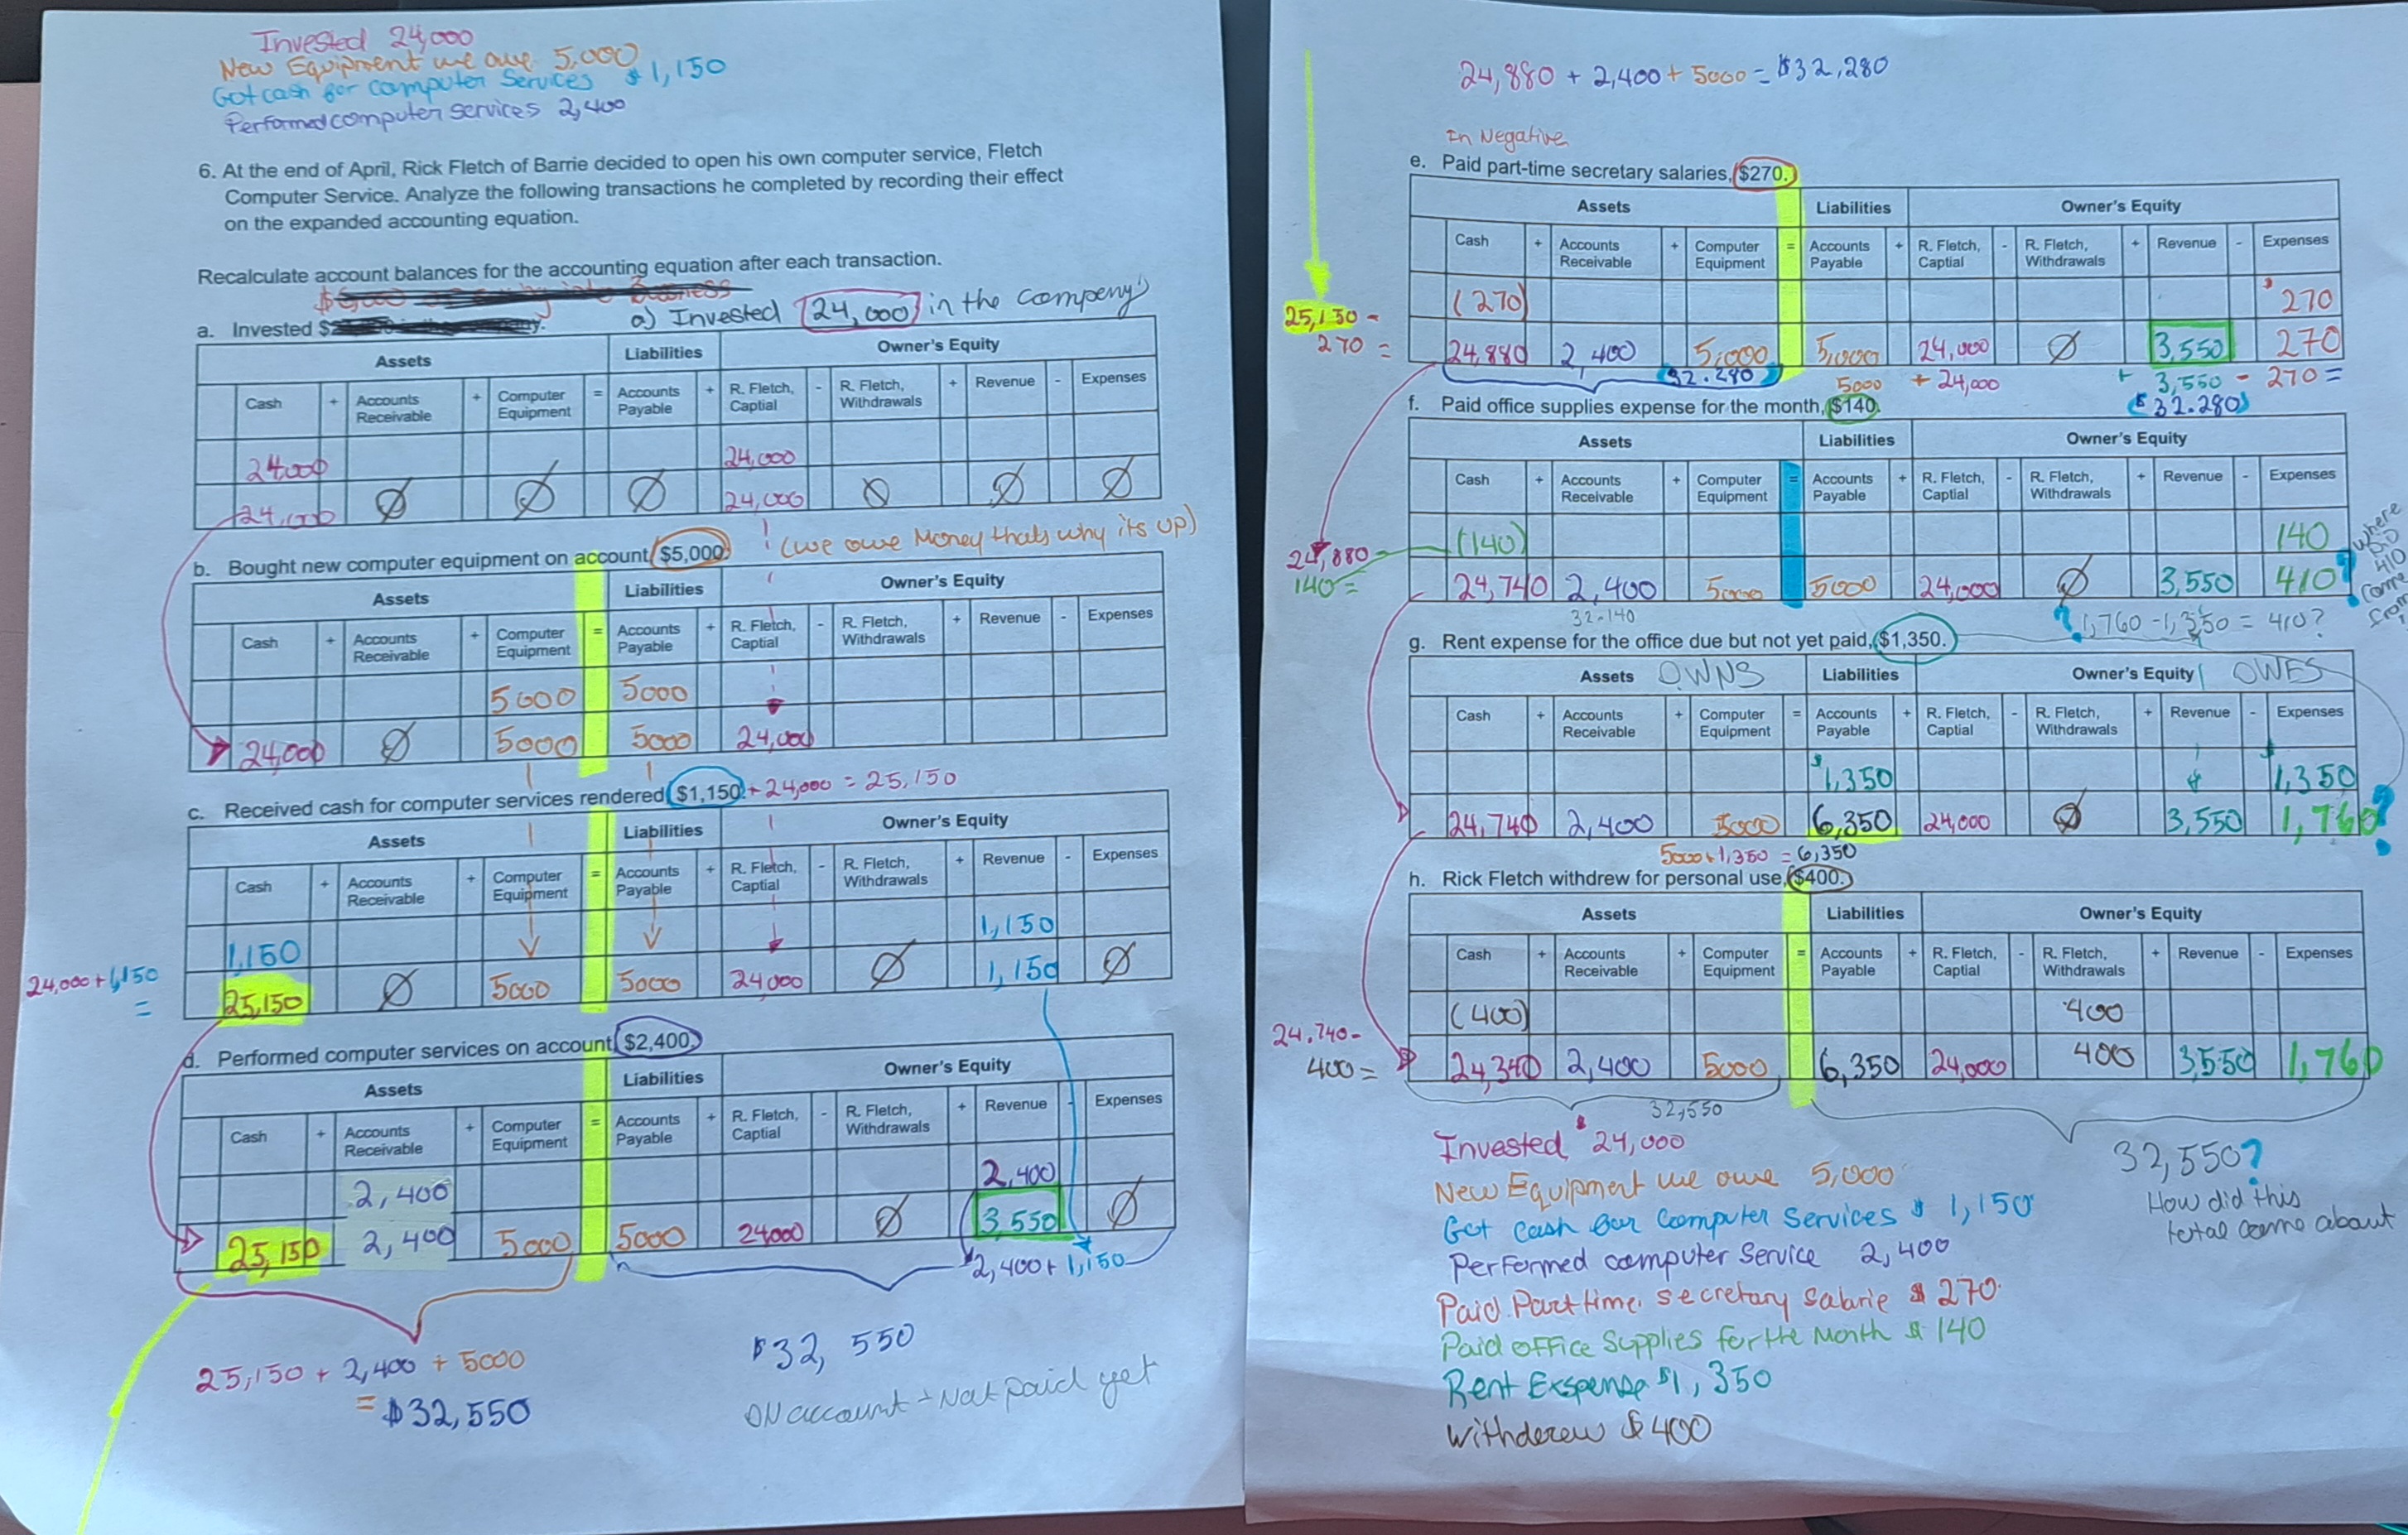 Invested 24,000
New Equipment we owe 5,000
Got cash for computer Services $ 1,150
Performed computer services 2,400
6. At the end of April, Rick Fletch of Barrie decided to open his own computer service, Fletch
Computer Service. Analyze the following transactions he completed by recording their effect
on the expanded accounting equation.
Recalculate account balances for the accounting equation after each transaction.
a. Invested $
a) Invested 24,000 in the company
Assets Liabilities Owner's Equity
Cash + Accounts Receivable + Computer Equipment = Accounts Payable + R. Fletch, Captial - R. Fletch, Withdrawals + Revenue - Expenses
24,000 24,000
24,000 Ø Ø Ø 24,000 Ø Ø Ø
(we owe Money thats why its up)
b. Bought new computer equipment on account $5,000.
Assets Liabilities Owner's Equity
Cash + Accounts Receivable + Computer Equipment = Accounts Payable + R. Fletch, Captial - R. Fletch, Withdrawals + Revenue - Expenses
5000 5000
24,000 Ø 5000 5000 24,000
c. Received cash for computer services rendered $1,150. + 24,000 = 25,150
Assets Liabilities Owner's Equity
Cash + Accounts Receivable + Computer Equipment = Accounts Payable + R. Fletch, Captial - R. Fletch, Withdrawals + Revenue - Expenses
1,150 1,150
24,000 + 1,150 =
25,150 Ø 5000 5000 24,000 Ø 1,150 Ø
d. Performed computer services on account $2,400.
Assets Liabilities Owner's Equity
Cash + Accounts Receivable + Computer Equipment = Accounts Payable + R. Fletch, Captial - R. Fletch, Withdrawals + Revenue - Expenses
2,400 2,400
25,150 2,400 5000 5000 24000 Ø 3,550 Ø
2,400 + 1,150
25,150 + 2,400 + 5000
= $32,550
$32,550
ON account - Not paid yet
24,880 + 2,400 + 5000 = $32,280
In Negative
e. Paid part-time secretary salaries, $270.
Assets Liabilities Owner's Equity
Cash + Accounts Receivable + Computer Equipment = Accounts Payable + R. Fletch, Captial - R. Fletch, Withdrawals + Revenue - Expenses
25,150 -
270 =
(270) $270
24,880 2,400 5,000 5,000 24,000 Ø 3,550 270
32.280 5000 + 24,000 + 3,550 - 270 =
$32.280
f. Paid office supplies expense for the month, $140.
Assets Liabilities Owner's Equity
Cash + Accounts Receivable + Computer Equipment = Accounts Payable + R. Fletch, Captial - R. Fletch, Withdrawals + Revenue - Expenses
24,880 -
140 =
(140) 140
24,740 2,400 5000 5000 24,000 Ø 3,550 410?
where DID 410 come from
32-140
? 1,760 - 1,350 = 410?
g. Rent expense for the office due but not yet paid, $1,350.
Assets OWNS Liabilities Owner's Equity OWES
Cash + Accounts Receivable + Computer Equipment = Accounts Payable + R. Fletch, Captial - R. Fletch, Withdrawals + Revenue - Expenses
$1,350 $1,350
24,740 2,400 5000 6,350 24,000 Ø 3,550 1,760?
5000 + 1,350 = 6,350
h. Rick Fletch withdrew for personal use, $400.
Assets Liabilities Owner's Equity
Cash + Accounts Receivable + Computer Equipment = Accounts Payable + R. Fletch, Captial - R. Fletch, Withdrawals + Revenue - Expenses
24.740 -
400 =
(400) 400
24,340 2,400 5000 6,350 24,000 400 3,550 1,760
32,550
Invested $24,000
New Equipment we owe 5,000
Get cash for Computer Services $ 1,150
Performed computer Service 2,400
Paid Part time secretary salarie $ 270
Paid office Supplies for the Month $ 140
Rent Exspense $1,350
Withderew $400
32,550?
How did this
total come about